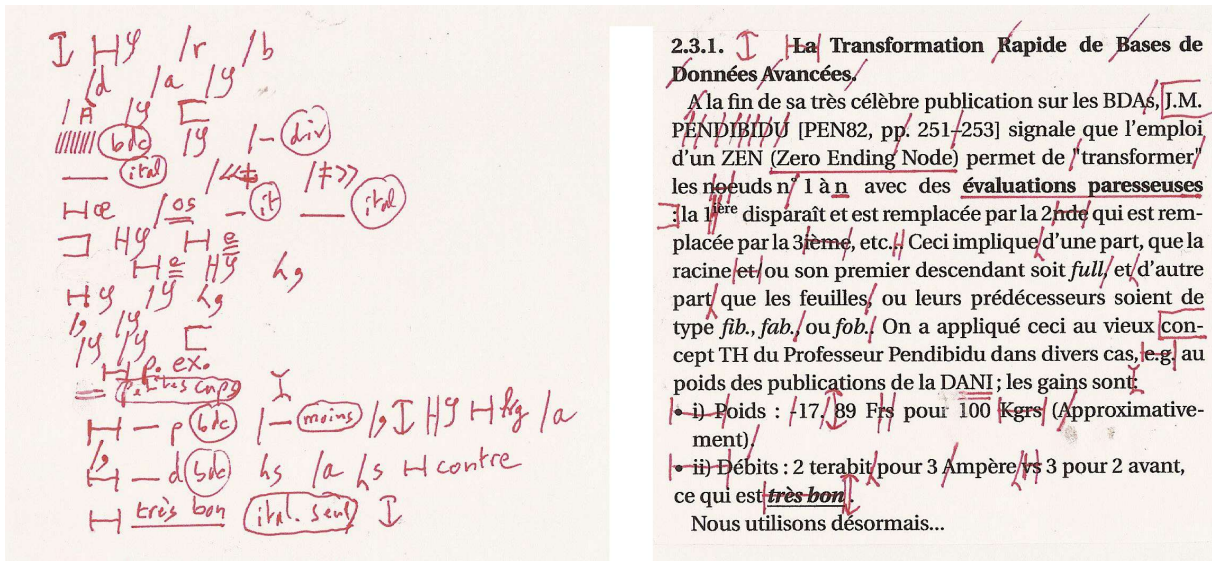 /r /b
/d /a
/A
bdc /– div
ital /« /»
œ /os – it — ital
e
e
p. ex.
petites caps
– p bdc /– moins /, kg /a
– d bdc /a /s contre
très bon ital. seul
2.3.1. La Transformation Rapide de Bases de
Données Avancées.
A la fin de sa très célèbre publication sur les BDAs, J.M.
PENDIBIDU [PEN82, pp. 251–253] signale que l'emploi
d'un ZEN (Zero Ending Node) permet de "transformer"
les noeuds n° 1 à n avec des évaluations paresseuses
: la 1ière disparaît et est remplacée par la 2nde qui est rem-
placée par la 3ième, etc.. Ceci implique d'une part, que la
racine et/ou son premier descendant soit full, et d'autre
part que les feuilles, ou leurs prédécesseurs soient de
type fib., fab., ou fob.. On a appliqué ceci au vieux con-
cept TH du Professeur Pendibidu dans divers cas, e.g. au
poids des publications de la DANI ; les gains sont:
• i) Poids : -17, 89 Frs pour 100 Kgrs (Approximative-
ment).
• ii) Débits : 2 terabit pour 3 Ampère/vs 3 pour 2 avant,
ce qui est très bon .
Nous utilisons désormais...